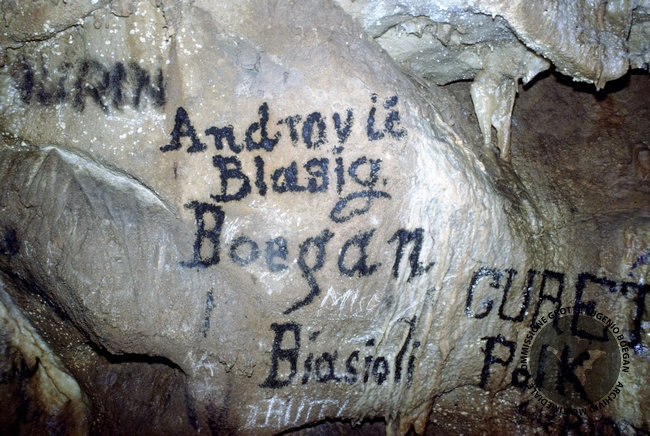 Andrović
Blasig
Boegan
Biasioli
CURET
Polk
COMMISSIONE GROTTE EUGENIO BOEGAN
ARCHIVIO